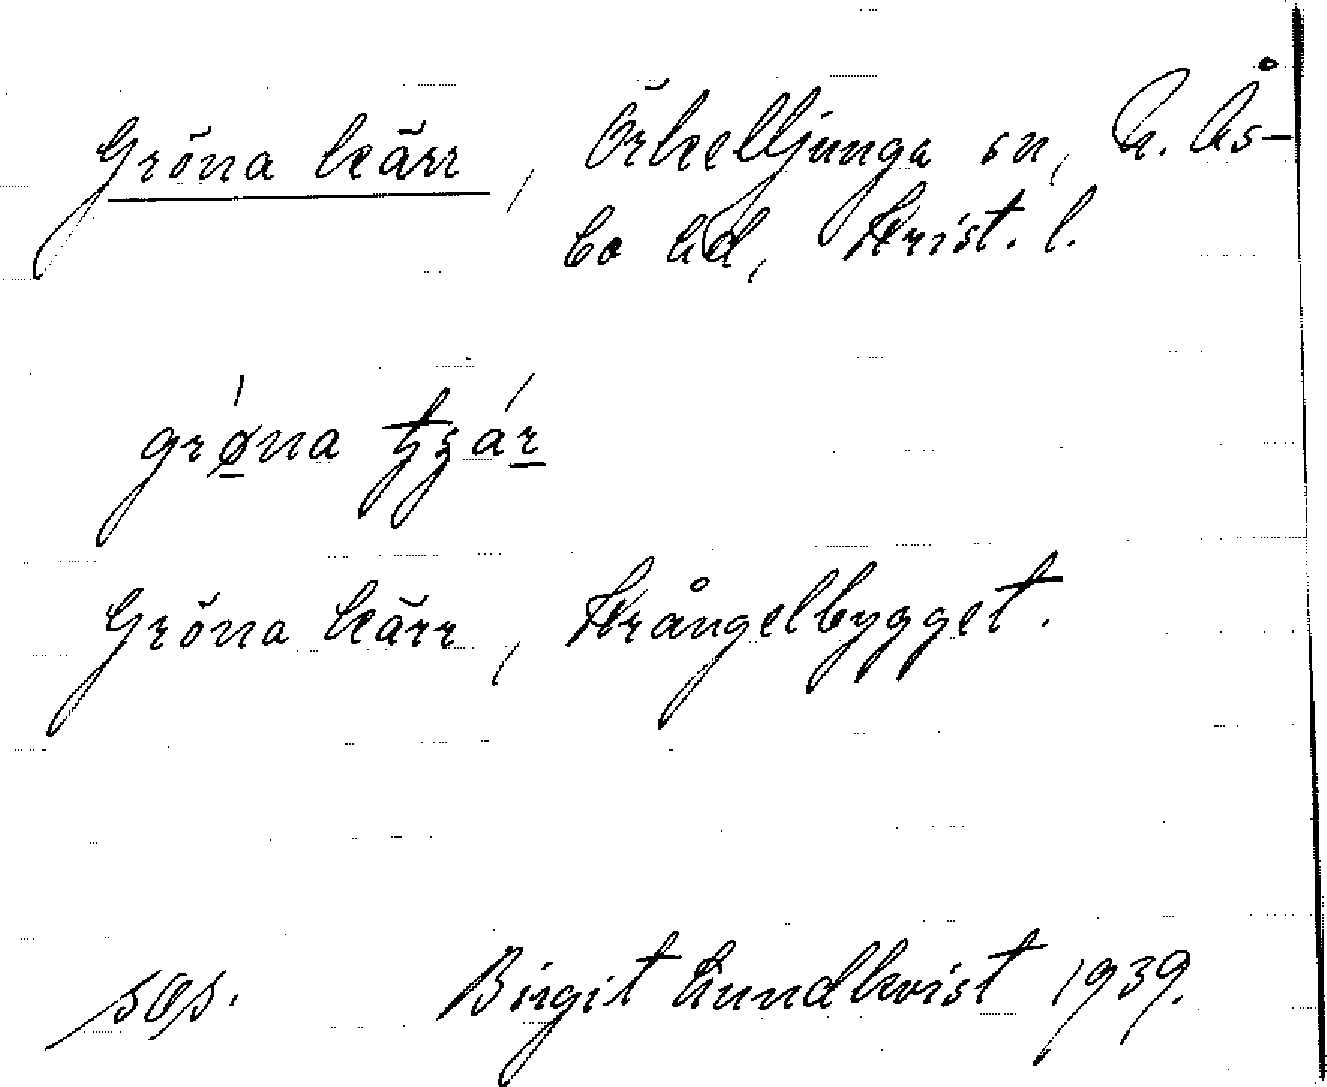 Gröna kärr, Örkelljunga sn, N. Ås-
bo hd, Krist. l.
grǿna tʒár
Gröna kärr, Krångelbygget.
Birgit Lundkvist 1939.